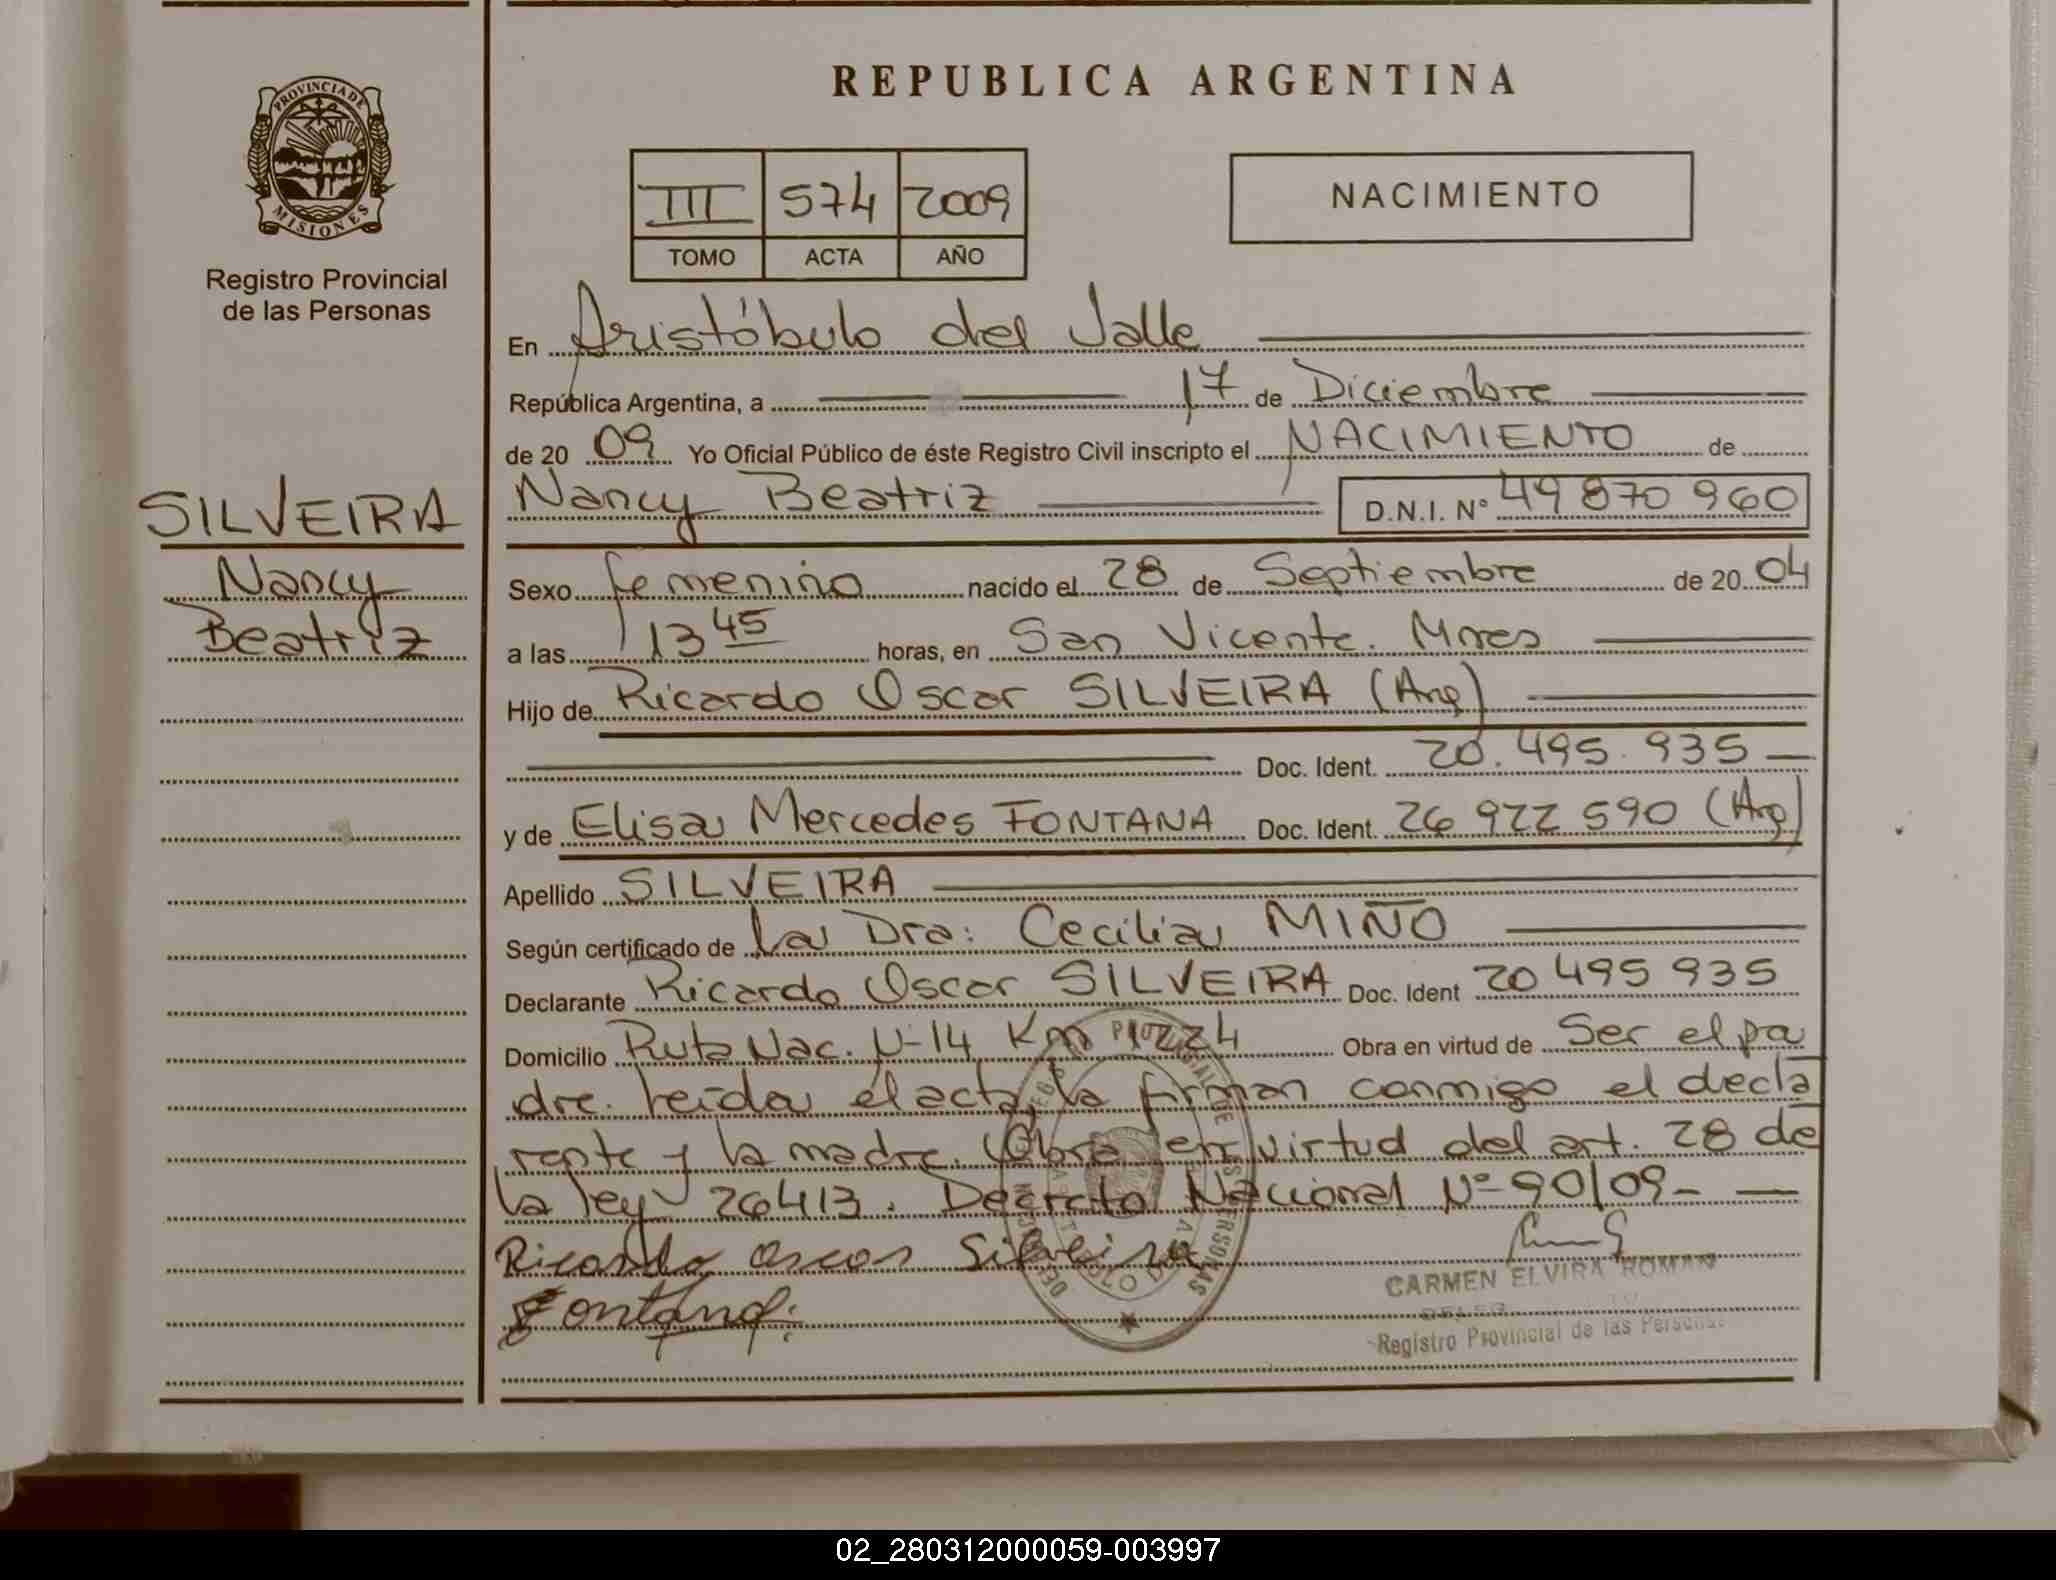 REPUBLICA ARGENTINA
PROVINCIA DE
MISIONES
Registro Provincial
de las Personas
III 574 2009
TOMO ACTA AÑO
NACIMIENTO
SILVEIRA
Nancy
Beatriz
En Aristóbulo del Valle
República Argentina, a 17 de Diciembre
de 20 09 Yo Oficial Público de éste Registro Civil inscripto el NACIMIENTO de
Nancy Beatriz D.N.I. N° 49 870 960
Sexo femenino nacido el 28 de Septiembre de 20 04
a las 13 45 horas, en San Vicente. Mnes
Hijo de Ricardo Oscar SILVEIRA (Arg)
Doc. Ident. 20.495.935
y de Elisa Mercedes FONTANA Doc. Ident. 26 922 590 (Arg)
Apellido SILVEIRA
Según certificado de La Dra: Cecilia MIÑO
Declarante Ricardo Oscar SILVEIRA Doc. Ident 20 495 935
Domicilio Ruta Nac. N-14 Km 1224 Obra en virtud de Ser el pa
dre. Leída el acta, la firman conmigo el decla
rante y la madre. Obra en virtud del art. 28 de
la ley 26413. Decreto Nacional N°-90/09-
Ricardo Oscar Silveira
Fontana.
CARMEN ELVIRA ROMAN
Registro Provincial de las Personas
02_280312000059-003997